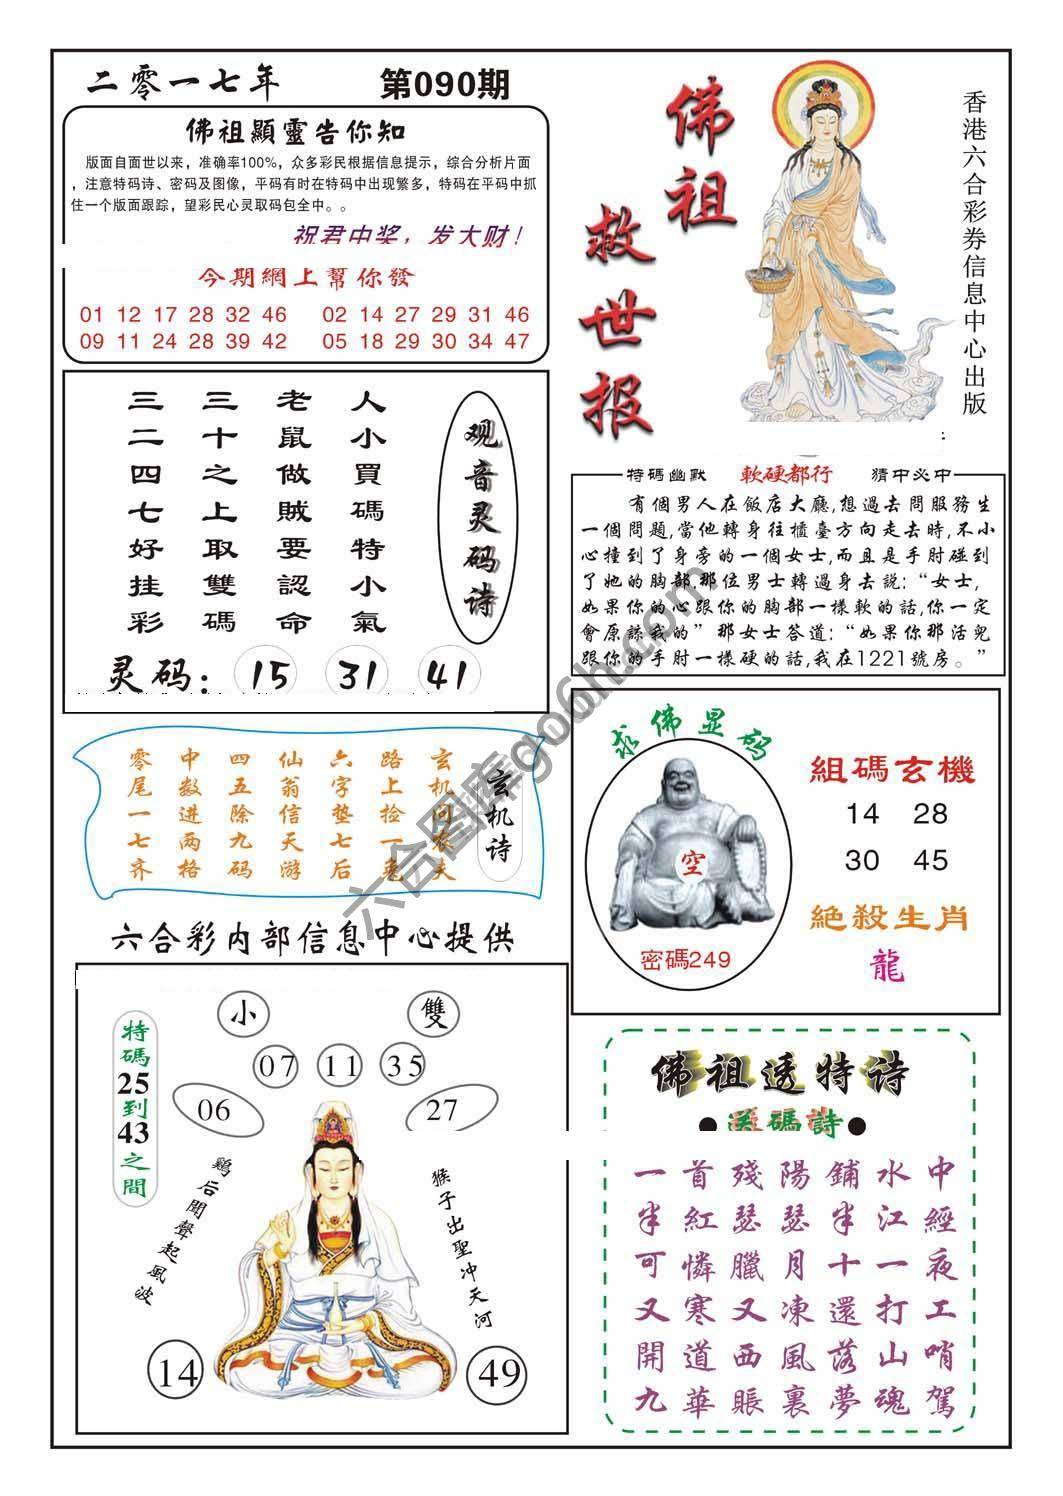 二零一七年
第090期
佛祖顯靈告你知
版面自面世以来，准确率100%，众多彩民根据信息提示，综合分析片面
，注意特码诗、密码及图像，平码有时在特码中出现繁多，特码在平码中抓
住一个版面跟踪，望彩民心灵取码包全中。。
祝君中奖，发大财！
今期網上幫你發
01 12 17 28 32 46
02 14 27 29 31 46
09 11 24 28 39 42
05 18 29 30 34 47
佛祖
救世报
香港六合彩券信息中心出版
人小買碼特小氣
老鼠做賊要認命
三十之上取雙碼
三二四七好挂彩
观音灵码诗
灵码：
15 31 41
特碼幽默
軟硬都行
猜中必中
有個男人在飯店大廳,想過去問服務生
一個問題,當他轉身往櫃臺方向走去時,不小
心撞到了身旁的一個女士,而且是手肘碰到
了她的胸部.那位男士轉過身去説：“女士，
如果你的心跟你的胸部一樣軟的話,你一定
會原諒我的” 那女士答道：“如果你那活兒
跟你的手肘一樣硬的話,我在1221號房。”
玄机诗
玄机问农夫
路上捡一兔
六字垫七后
仙翁信天游
四五除九码
中数进两格
零尾一七齐
求佛显码
空
密碼249
組碼玄機
14 28
30 45
絶殺生肖
龍
六合彩内部信息中心提供
小
雙
07 11 35
06
27
特碼25到43之間
鷄后聞聲起風波
猴子出聖冲天河
14
49
佛祖透特诗
送碼詩
一首殘陽鋪水中
半紅瑟瑟半江經
可憐臘月十一夜
又寒又凍還打工
開道西風落山哨
九華賬裏夢魂駕
六合图库go66h.com